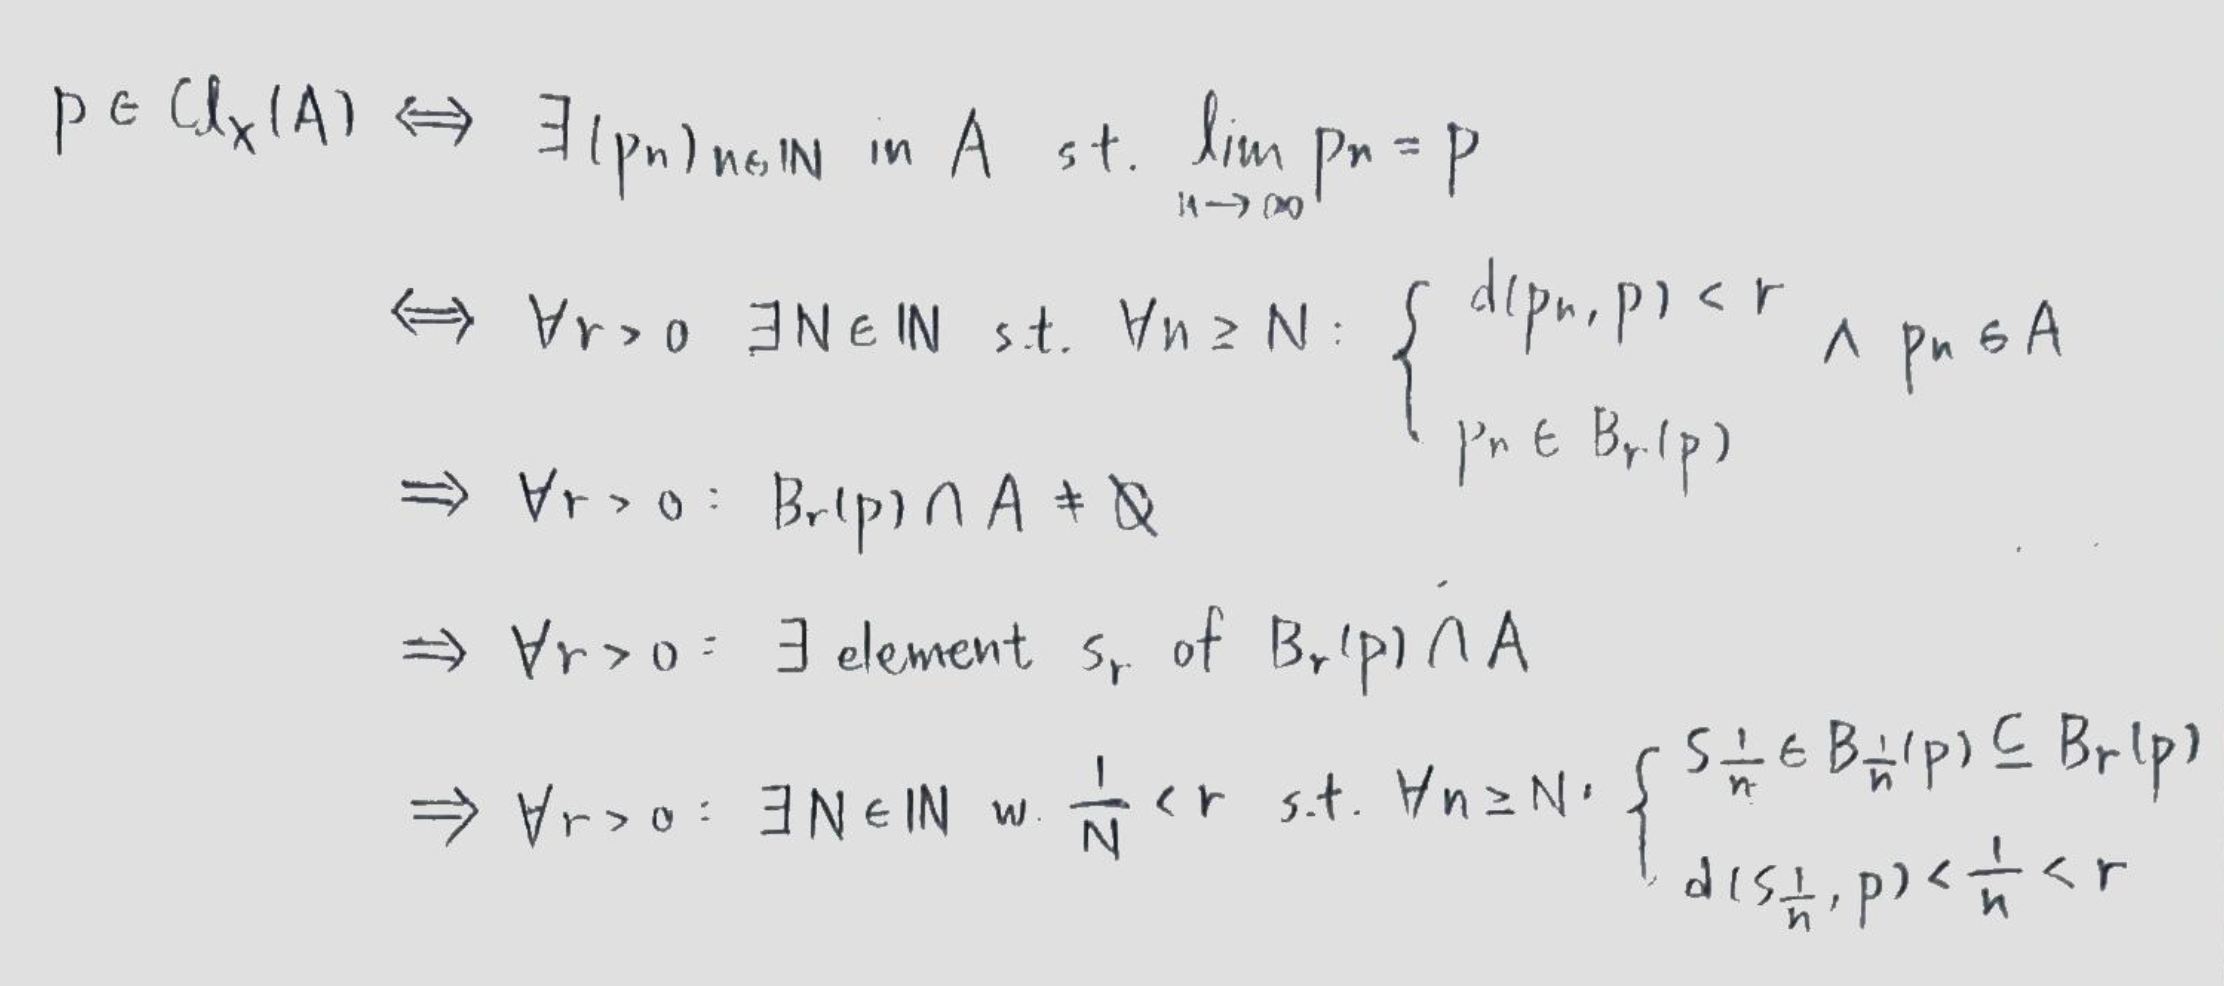 p ∈ Cl_X(A) ⟺ ∃(p_n)_{n∈ℕ} in A st. lim_{n→∞} p_n = p
⟺ ∀r>0 ∃N∈ℕ s.t. ∀n≥N: { d(p_n, p) < r ; p_n ∈ B_r(p) ∧ p_n ∈ A
⇒ ∀r>0: B_r(p) ∩ A ≠ ∅
⇒ ∀r>0: ∃ element s_r of B_r(p) ∩ A
⇒ ∀r>0: ∃N∈ℕ w. 1/N < r s.t. ∀n≥N: { s_{1/n} ∈ B_{1/n}(p) ⊆ B_r(p) ; d(s_{1/n}, p) < 1/n < r